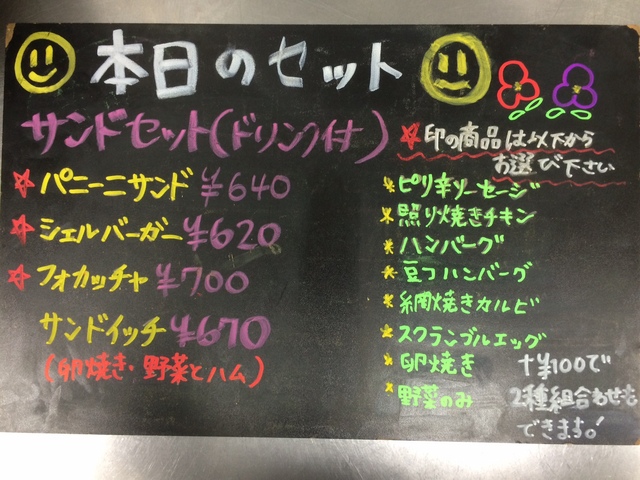 本日のセット
サンドセット(ドリンク付)
パニーニサンド ¥640
シェルバーガー ¥620
フォカッチャ ¥700
サンドイッチ ¥670
(卵焼き・野菜とハム)
☆印の商品は以下から
お選び下さい
*ピリ辛ソーセージ
*照り焼きチキン
*ハンバーグ
*豆フハンバーグ
*網焼きカルビ
*スクランブルエッグ
*卵焼き
*野菜のみ
+¥100で
2種組合わせも
できます!